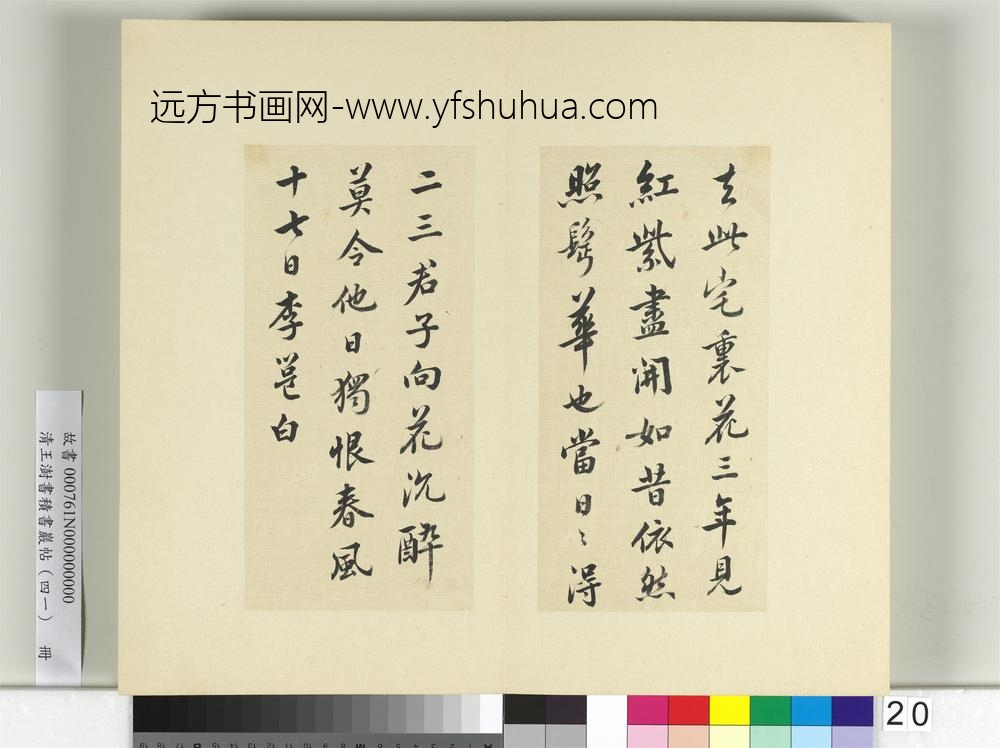 远方书画网-www.yfshuhua.com
去此宅裏花三年見
紅紫盡開如昔依然
照髩華也當日〻得
二三君子向花沉醉
莫令他日獨恨春風
十七日李邕白
故書 000761N000000000
清王澍書積書巖帖（四一） 冊
20